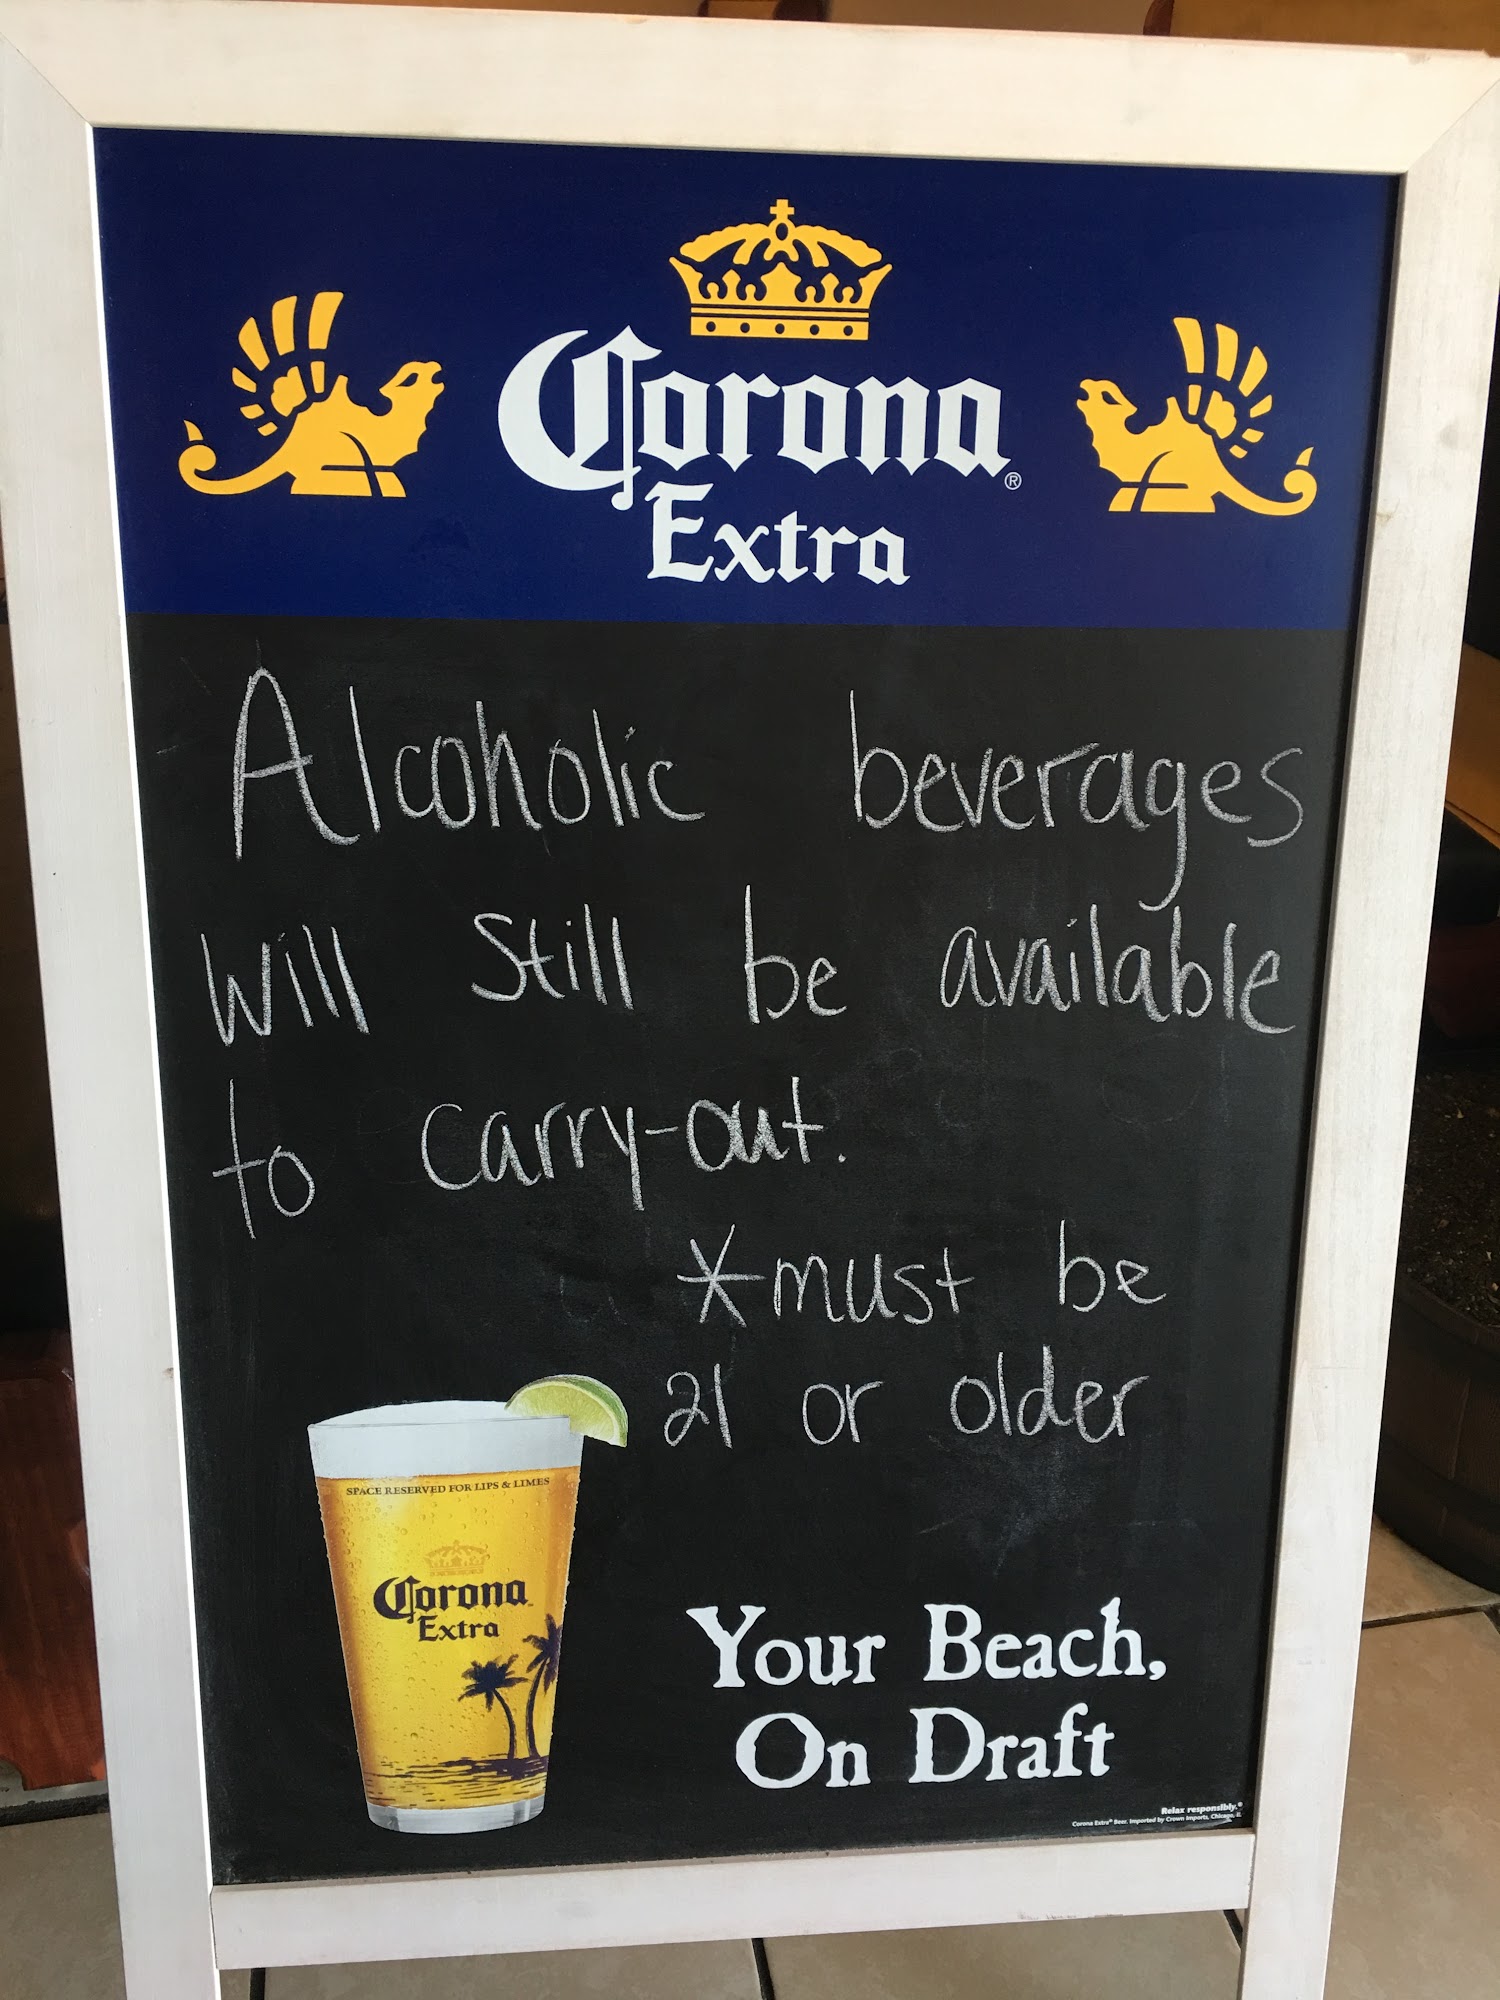 Corona®
Extra
Alcoholic beverages
will still be available
to carry-out.
*must be
21 or older
SPACE RESERVED FOR LIPS & LIMES
Corona
Extra
Your Beach,
On Draft
Relax responsibly.®
Corona Extra® Beer. Imported by Crown Imports, Chicago, IL